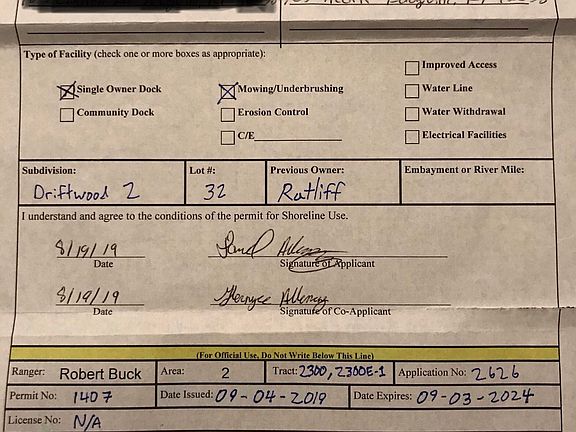 Type of Facility (check one or more boxes as appropriate):
Improved Access
Single Owner Dock Mowing/Underbrushing Water Line
Community Dock Erosion Control Water Withdrawal
C/E Electrical Facilities
Subdivision: Lot #: Previous Owner: Embayment or River Mile:
Driftwood 2 32 Ratliff
I understand and agree to the conditions of the permit for Shoreline Use.
8/19/19
Date Signature of Applicant
8/19/19
Date Signature of Co-Applicant
(For Official Use, Do Not Write Below This Line)
Ranger: Robert Buck Area: 2 Tract: 2300, 2300E-1 Application No: 2626
Permit No: 1407 Date Issued: 09-04-2019 Date Expires: 09-03-2024
License No: N/A